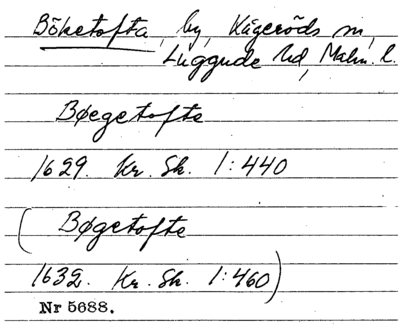 Böketofta, by, Kågeröds sn,
Luggude hd, Malm. l.
Bøegetofte
1629. Kr. Sk. 1:440
(Bøgetofte
1632. Kr. Sk. 1:460)
Nr 5688.